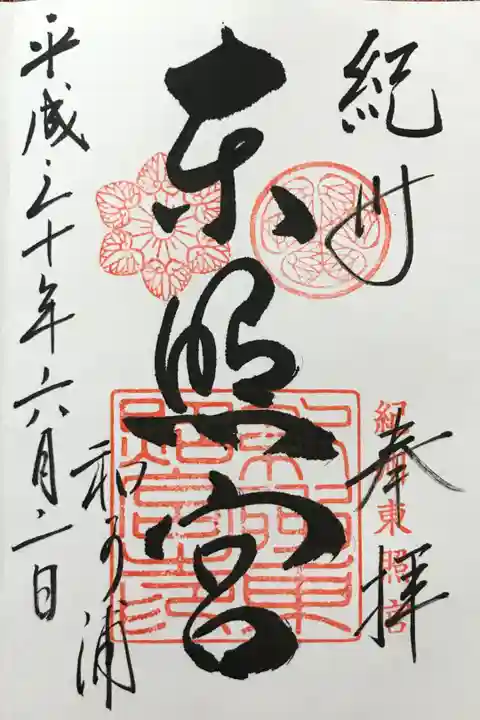 紀州
奉拝
紀州東照宮
東照宮
和歌浦
平成三十年六月二日